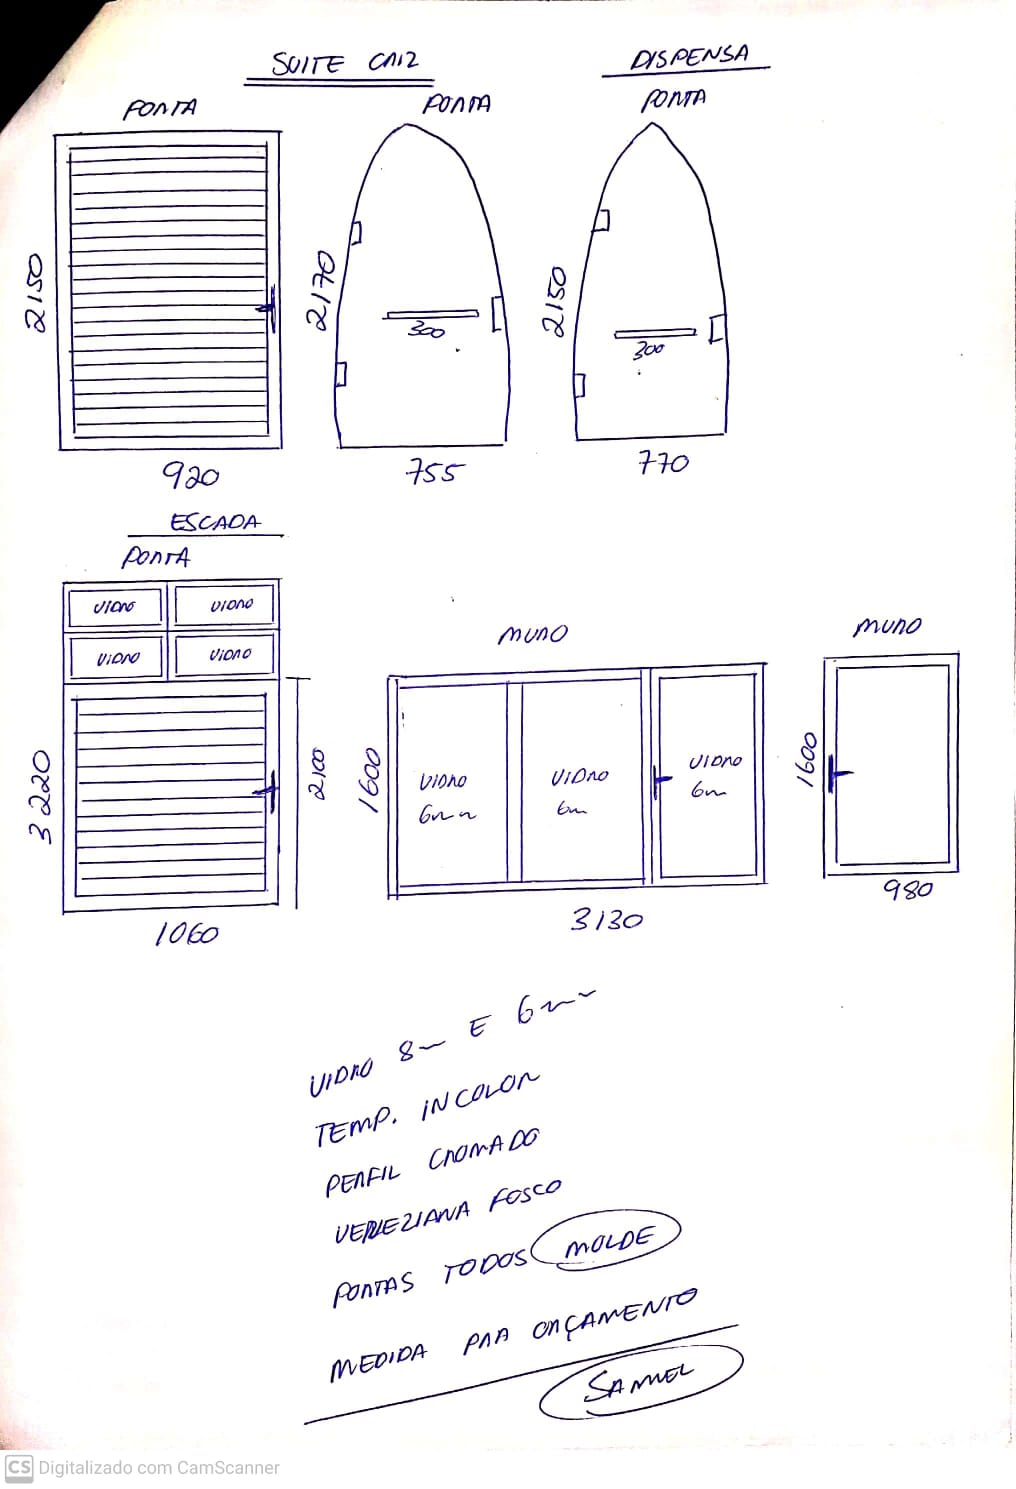 SUITE CRIZ
DISPENSA
PORTA
PORTA
PORTA
2150
2170
2150
300
300
920
755
770
ESCADA
PORTA
VIDRO
VIDRO
VIDRO
VIDRO
MURO
MURO
3220
2100
1600
1600
VIDRO
6mm
VIDRO
6m
VIDRO
6m
1060
3130
980
VIDRO 8m E 6mm
TEMP. INCOLOR
PERFIL CROMADO
VENEZIANA FOSCO
PORTAS TODOS MOLDE
MEDIDA PRA ORÇAMENTO
SAMUEL
CS Digitalizado com CamScanner